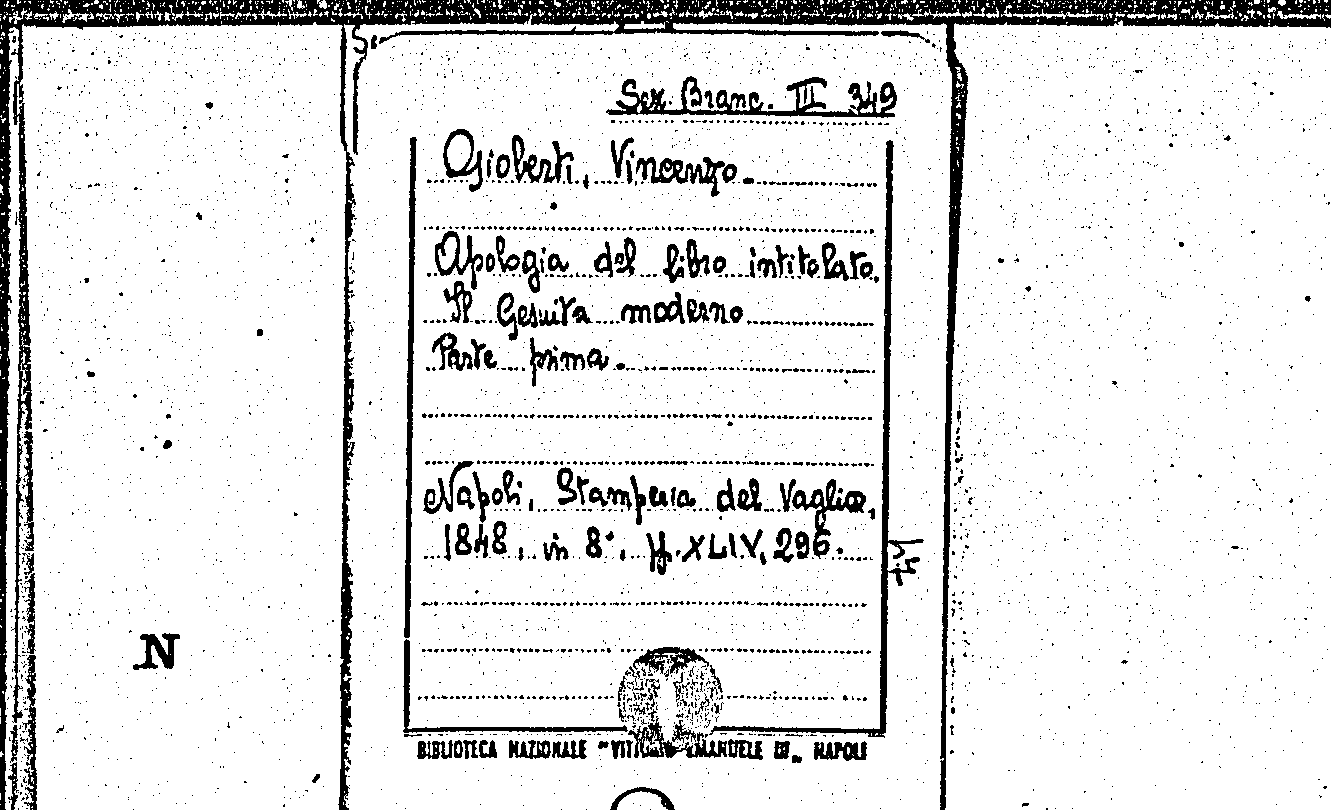 Sez. Branc. III 349
Gioberti, Vincenzo.
Apologia del libro intitolato.
Il Gesuita moderno
Parte prima.
Napoli, Stamperia del Vaglio,
1848, in 8°, pp. XLIV, 296.
N
BIBLIOTECA NAZIONALE "VITTORIO EMANUELE III" NAPOLI